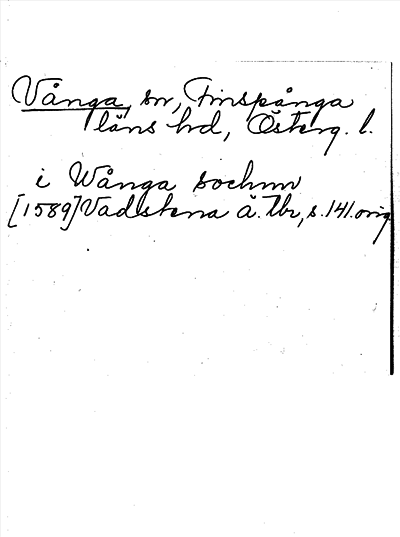 Vånga, sn, Finspånga
läns hd, Österg. l.
i Wånga sochnn
[1589] Vadstena ä. tbr, s. 141. orig.